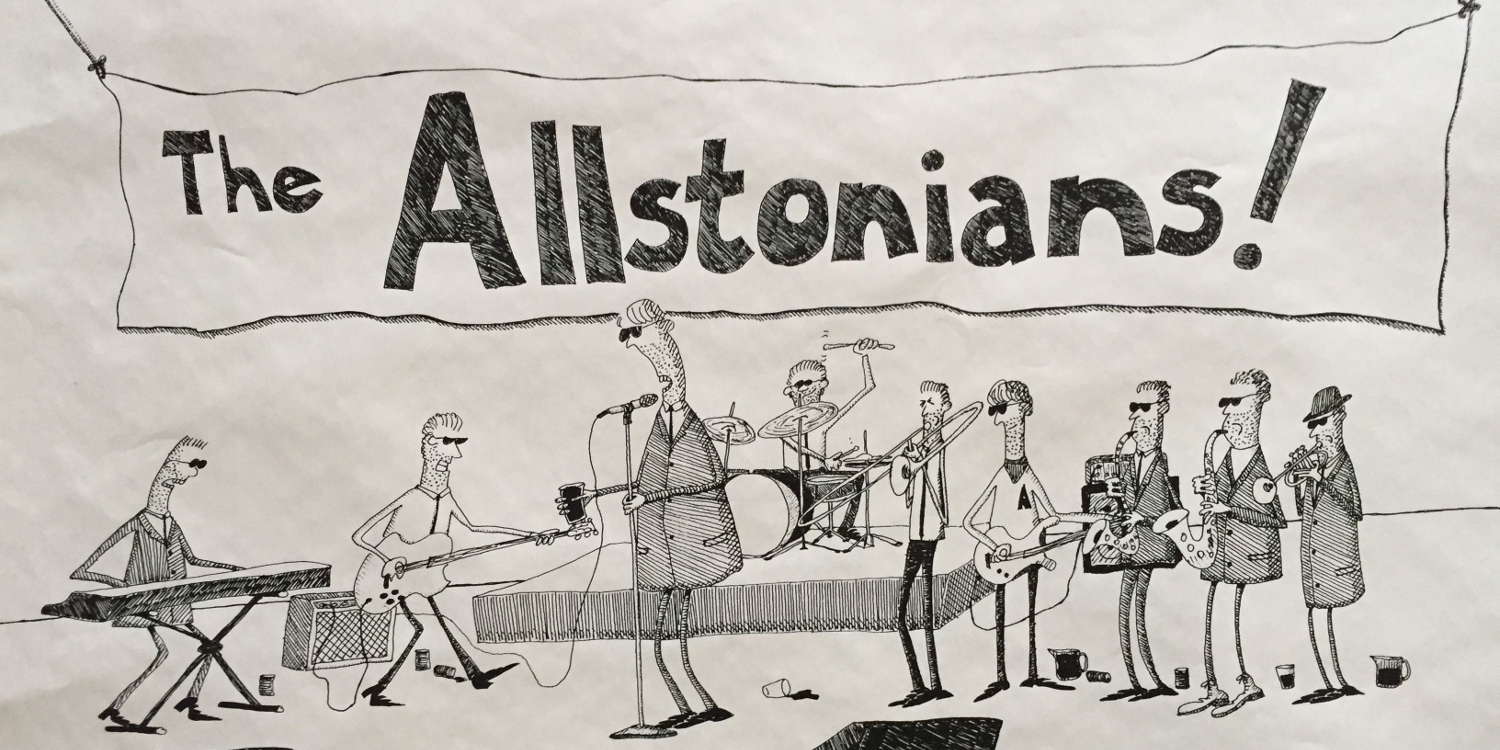 The Allstonians!
A